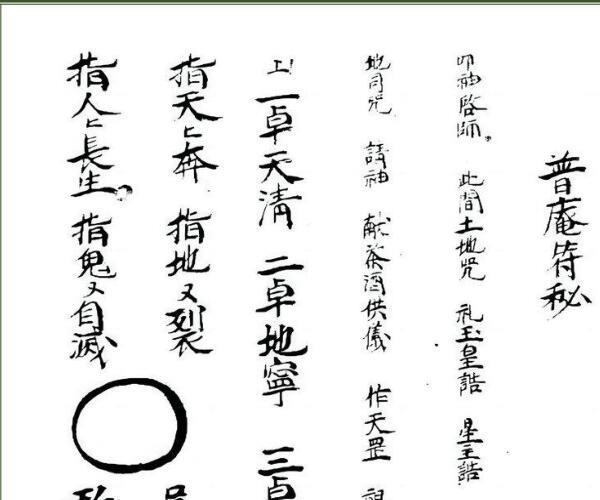 普庵符秘
叩神啓師。 此間土地咒 礼玉皇誥 星主誥
地司咒 請神 献茶酒供儀 作天罡 祖
上 一卓天清 二卓地寧 三卓
指天匕奔 指地又裂
指人匕長生。 指鬼又自滅